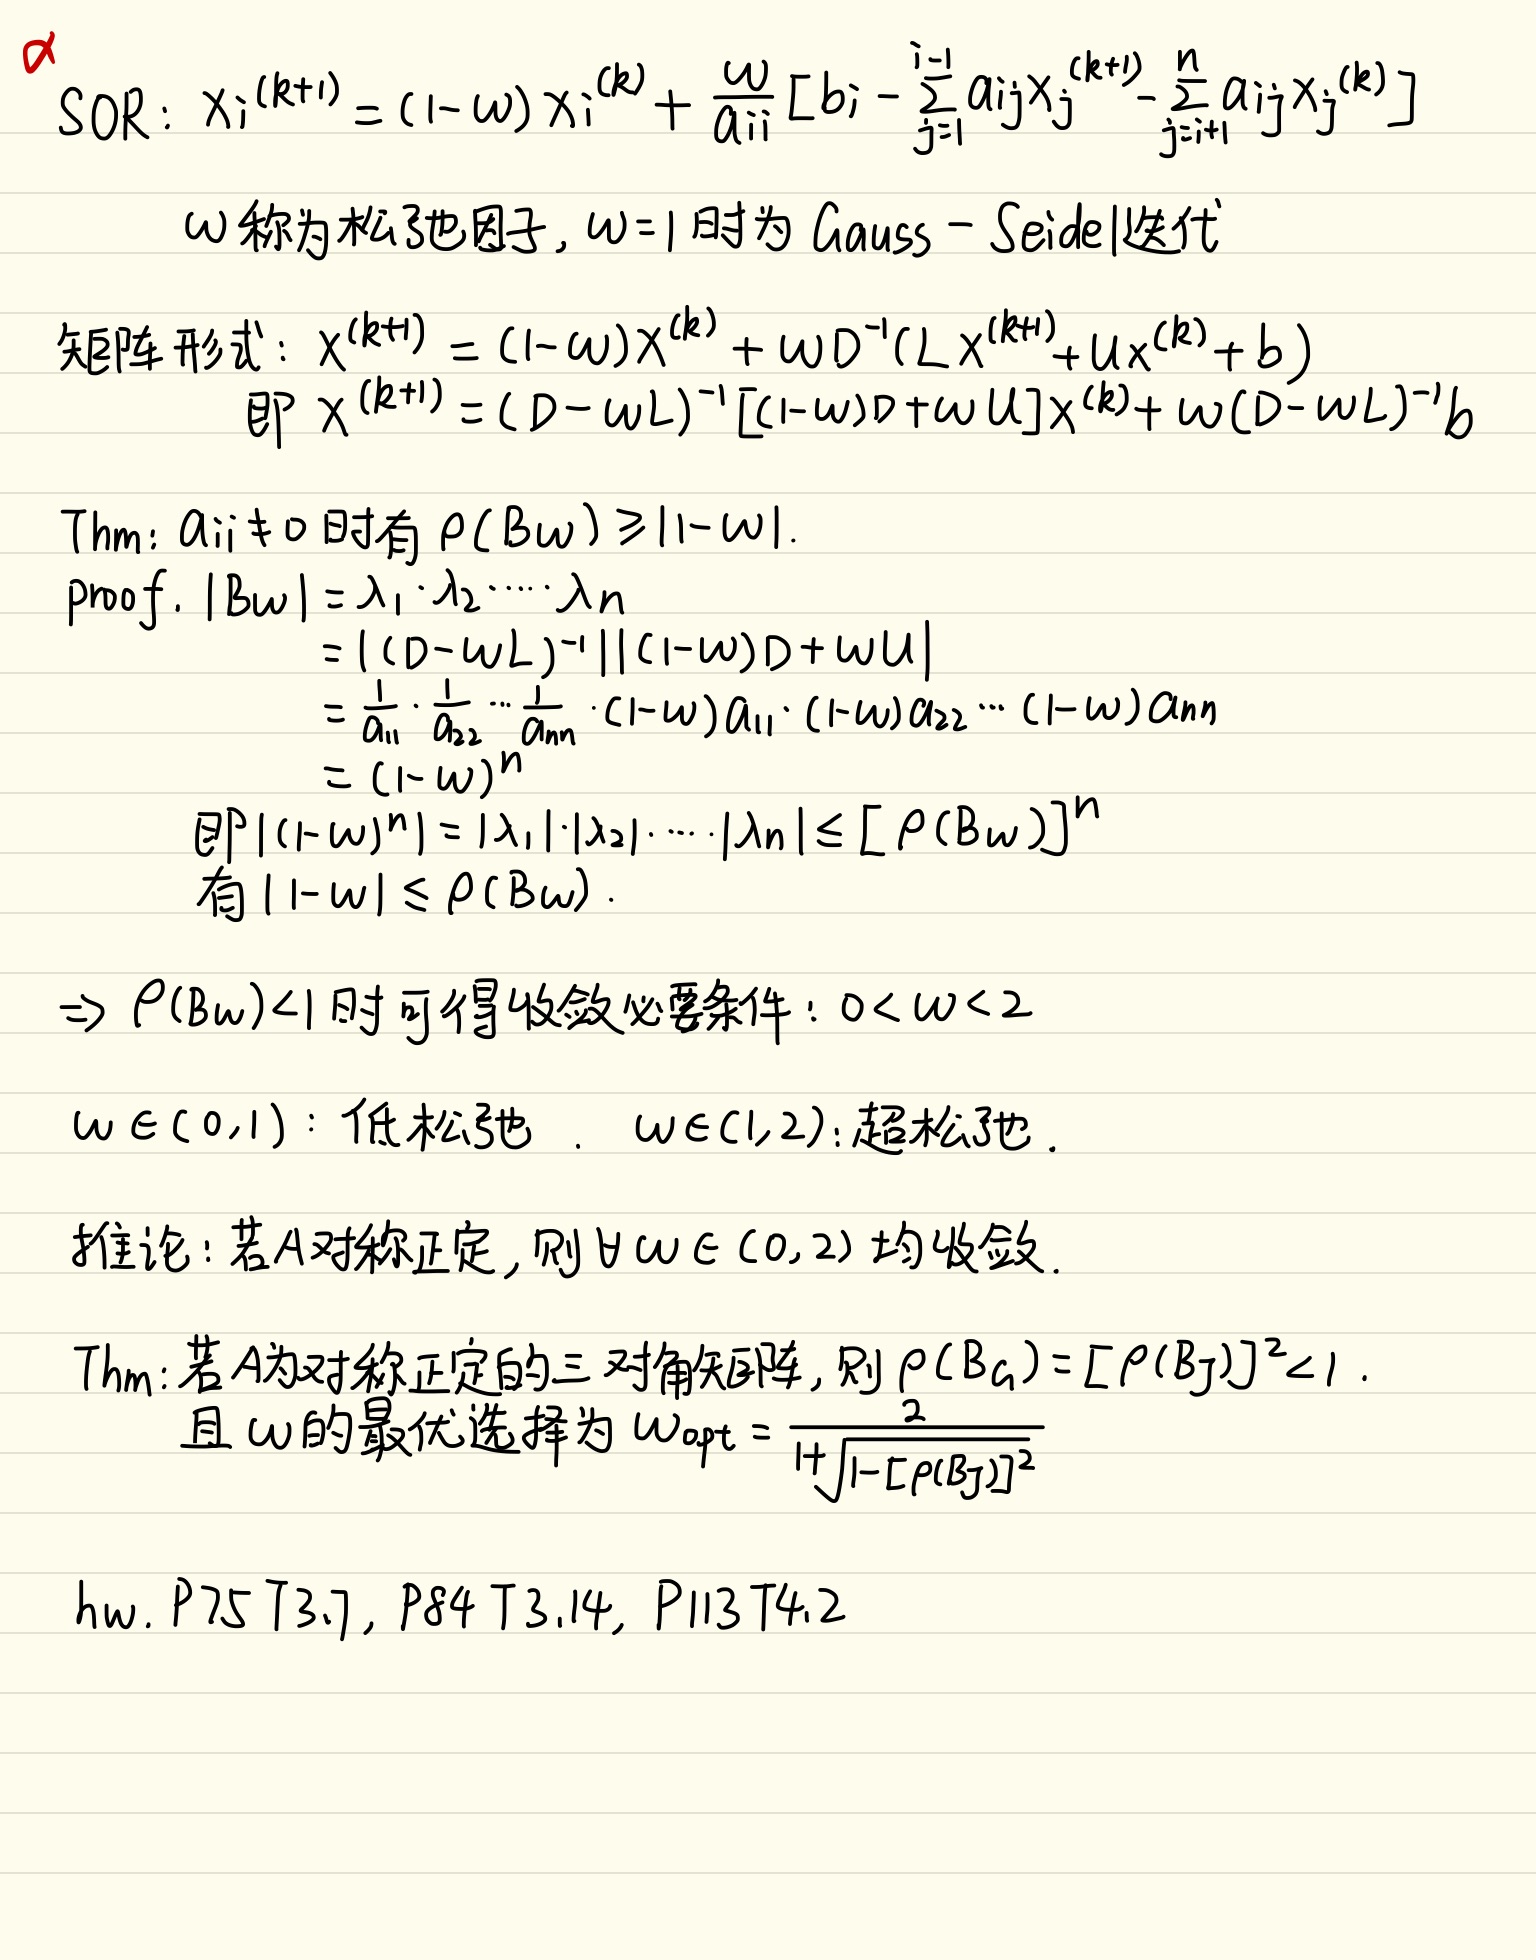 α
SOR: xᵢ^(k+1) = (1-ω) xᵢ^(k) + ω/aᵢᵢ [bᵢ - ∑_{j=1}^{i-1} aᵢⱼxⱼ^(k+1) - ∑_{j=i+1}^{n} aᵢⱼxⱼ^(k)]
ω 称为松弛因子, ω=1 时为 Gauss-Seidel迭代
矩阵形式: X^(k+1) = (1-ω)X^(k) + ωD⁻¹(LX^(k+1) + Ux^(k) + b)
即 X^(k+1) = (D-ωL)⁻¹[(1-ω)D+ωU]X^(k) + ω(D-ωL)⁻¹b
Thm: aᵢᵢ≠0 时有 ρ(Bω) ≥ |1-ω|.
proof. |Bω| = λ₁·λ₂·····λn
= |(D-ωL)⁻¹||(1-ω)D+ωU|
= 1/a₁₁ · 1/a₂₂ ··· 1/ann · (1-ω)a₁₁·(1-ω)a₂₂···(1-ω)ann
= (1-ω)ⁿ
即|(1-ω)ⁿ| = |λ₁|·|λ₂|·····|λn| ≤ [ρ(Bω)]ⁿ
有|1-ω| ≤ ρ(Bω).
⇒ ρ(Bω)<1 时可得收敛必要条件: 0<ω<2
ω∈(0,1): 低松弛. ω∈(1,2): 超松弛.
推论: 若A对称正定, 则∀ω∈(0,2) 均收敛.
Thm: 若A为对称正定的三对角矩阵, 则 ρ(B_G) = [ρ(B_J)]² < 1.
且 ω 的最优选择为 ω_opt = 2/(1+√(1-[ρ(B_J)]²))
hw. P75 T3.7, P84 T3.14, P113 T4.2